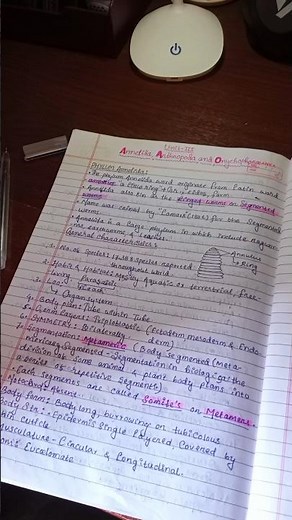 Unit-III
Annelida, Arthropoda and Onychophora
Phylum Annelida:
• The phylum Annelida word originate from Latin word
annelus = little ring + Ida
• Annelida also known as the ringed worms or segmented
worms.
• Name was coined by Lamarck (1809) for the segmented
worms.
• Annelida is a large phylum in which include
the earthworms & leeches.
General characteristics:
Annulus
Ring
1. No. of species: species reported
throughout world.
2. Habit & Habitat: Mostly aquatic or terrestrial, free-
living, Parasitic
Organ system.
Body Plan: Tube within Tube
Germ Layers: Triploblastic (Ectoderm, mesoderm & Endo
derm)
Symmetry: Bilaterally
Segmentation: Metameric (Body Segmented (Meta-
merically Segmented - Segmentation in biology is the
division of some animal & plant body plans into
a series of repetitive Segments)
Each segments are called Somite's or Metameres.
Body Form: Body long, burrowing or tubicolous
Body Skin: Epidermis Single layered, Covered by
cuticle
Musculature - Circular & Longitudinal.
Eucoelomate